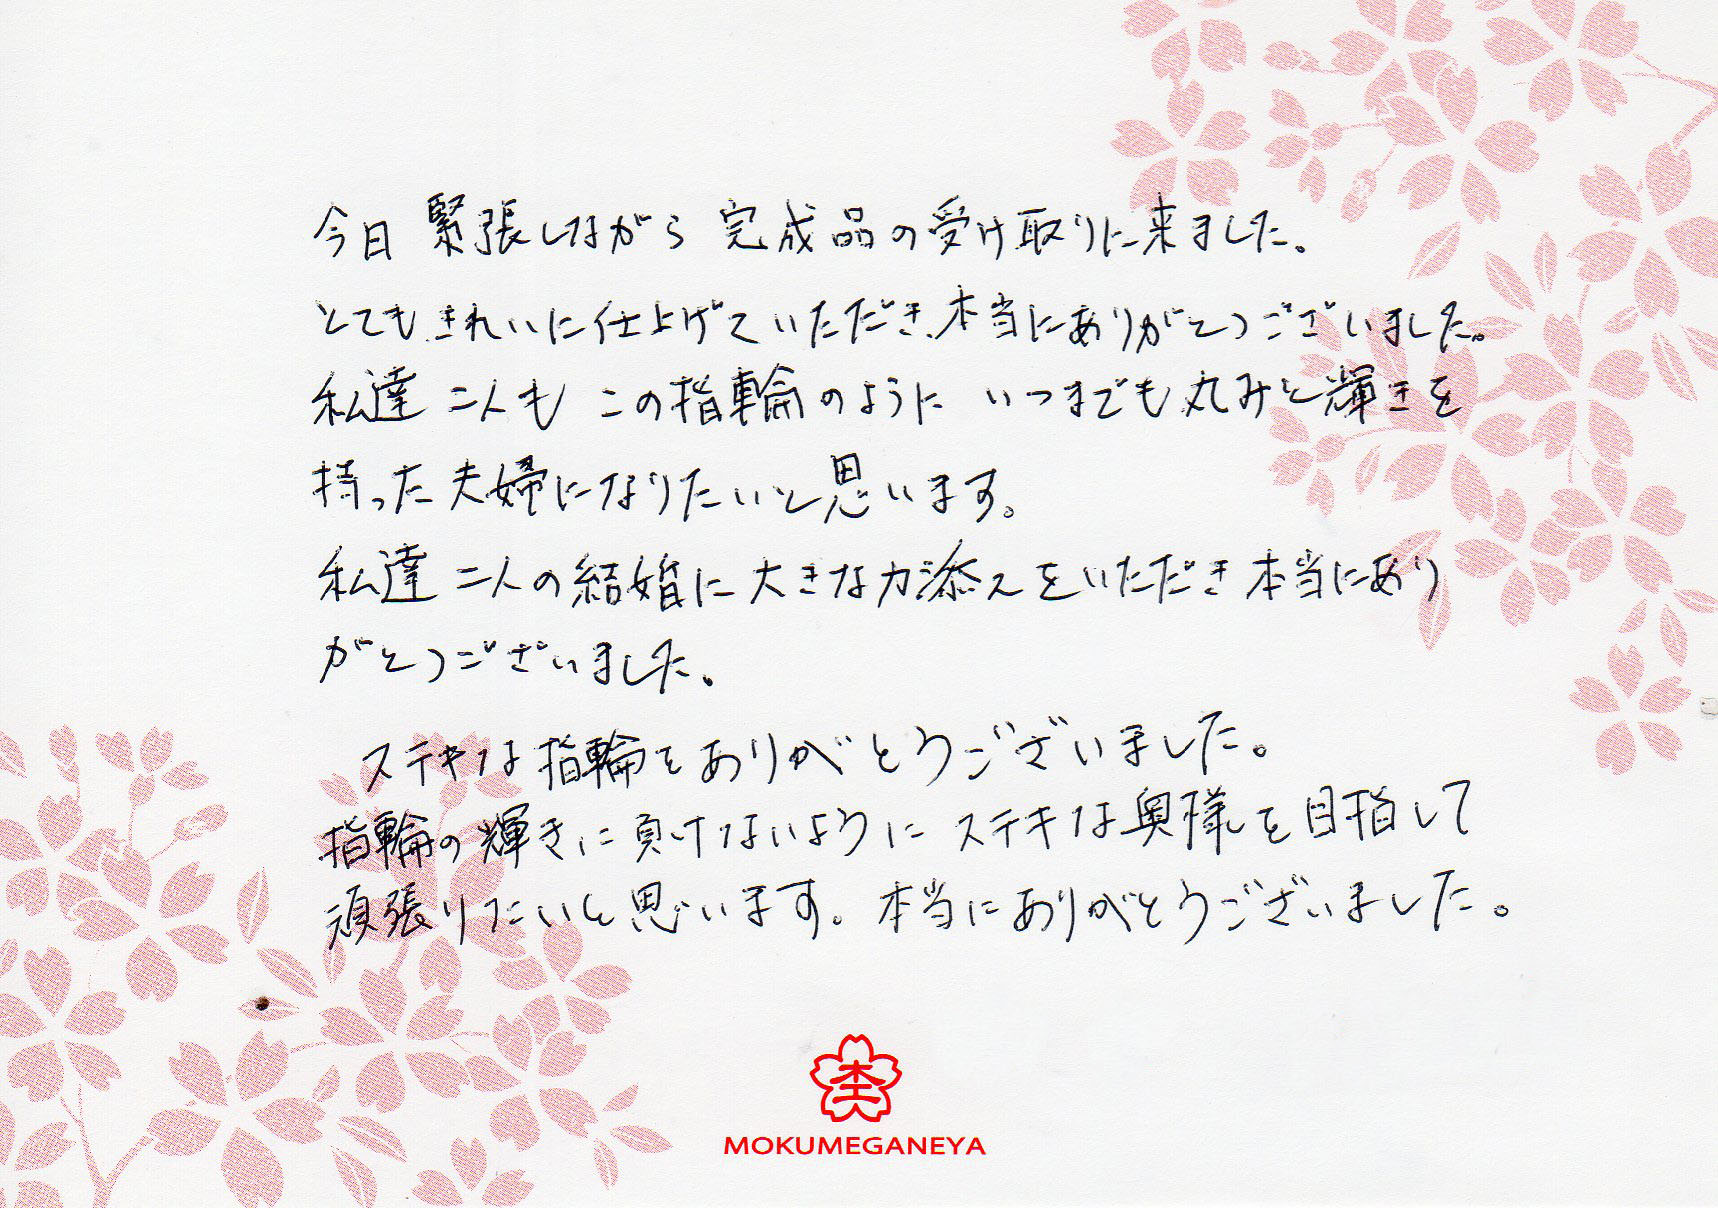 今日 緊張しながら 完成品の受け取りに来ました。
とてもきれいに仕上げていただき、本当にありがとうございました。
私達 二人も この指輪のように いつまでも丸みと輝きを
持った夫婦になりたいと思います。
私達 二人の結婚に大きな力添えをいただき本当にあり
がとうございました。
ステキな指輪をありがとうございました。
指輪の輝きに負けないようにステキな奥様を目指して
頑張りたいと思います。本当にありがとうございました。
MOKUMEGANEYA